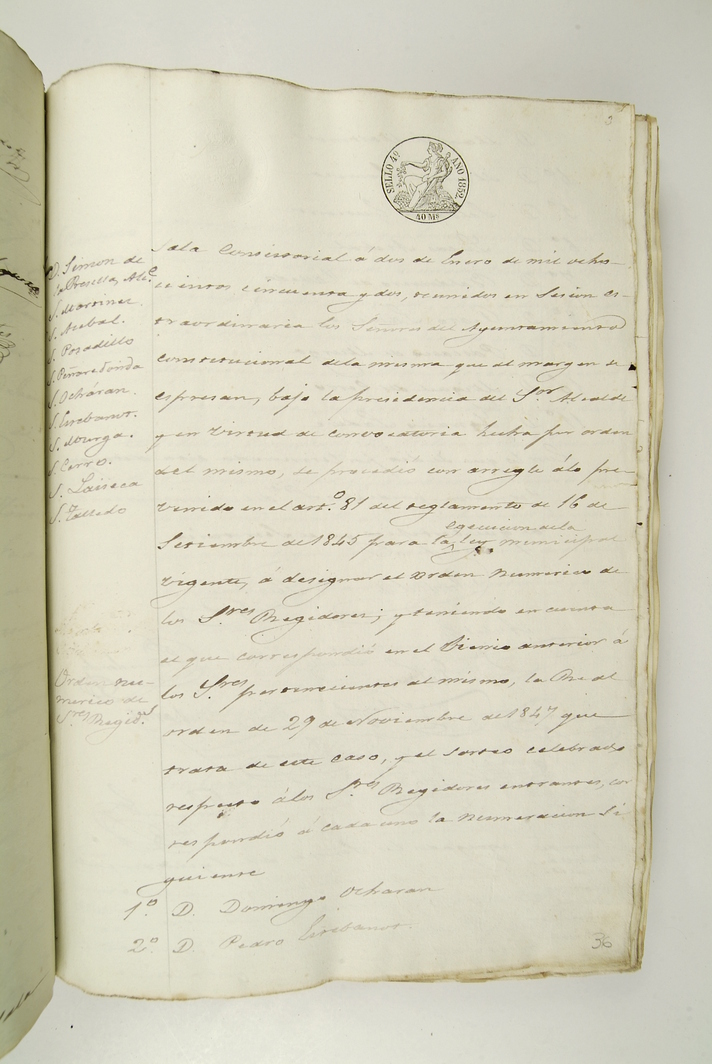 3
SELLO 4º AÑO 1852
40 Ms
D. Simon de
la Presilla, Alc.e
S. Martinez
S. Acebal.
S. Posadillo
S. Peñaredonda
S. Ocháran.
S. Estebanot.
S. Murga.
S. Cerro.
S. Laiseca
S. Talledo
Sala Consistorial á dos de Enero de mil ocho-
cientos cincuenta y dos, reunidos en Sesion es-
traordinaria los Señores del Ayuntamiento
constitucional de la misma que al margen se
espresan, bajo la presidencia del Sor Alcalde
y en virtud de convocatoria hecha por orden
del mismo, se procedió con arreglo á lo pre-
venido en el arto. 81 del reglamento de 16 de
egecucion de la
Setiembre de 1845 para la ley municipal
vigente, á designar el orden numerico de
los Sres Regidores; y teniendo en cuenta
el que correspondió en el Bienio anterior á
los Sres pertenecientes al mismo, la Real
orden de 29 de Noviembre de 1847 que
trata de este caso, y el sorteo celebrado
respecto á los Sres Regidores entrantes, cor
respondió á cada uno la numeracion si
guiente
Orden nu-
merico de
Sres Regid.s
1º. D. Domingo Ocharan
2º. D. Pedro Estebanot.
36